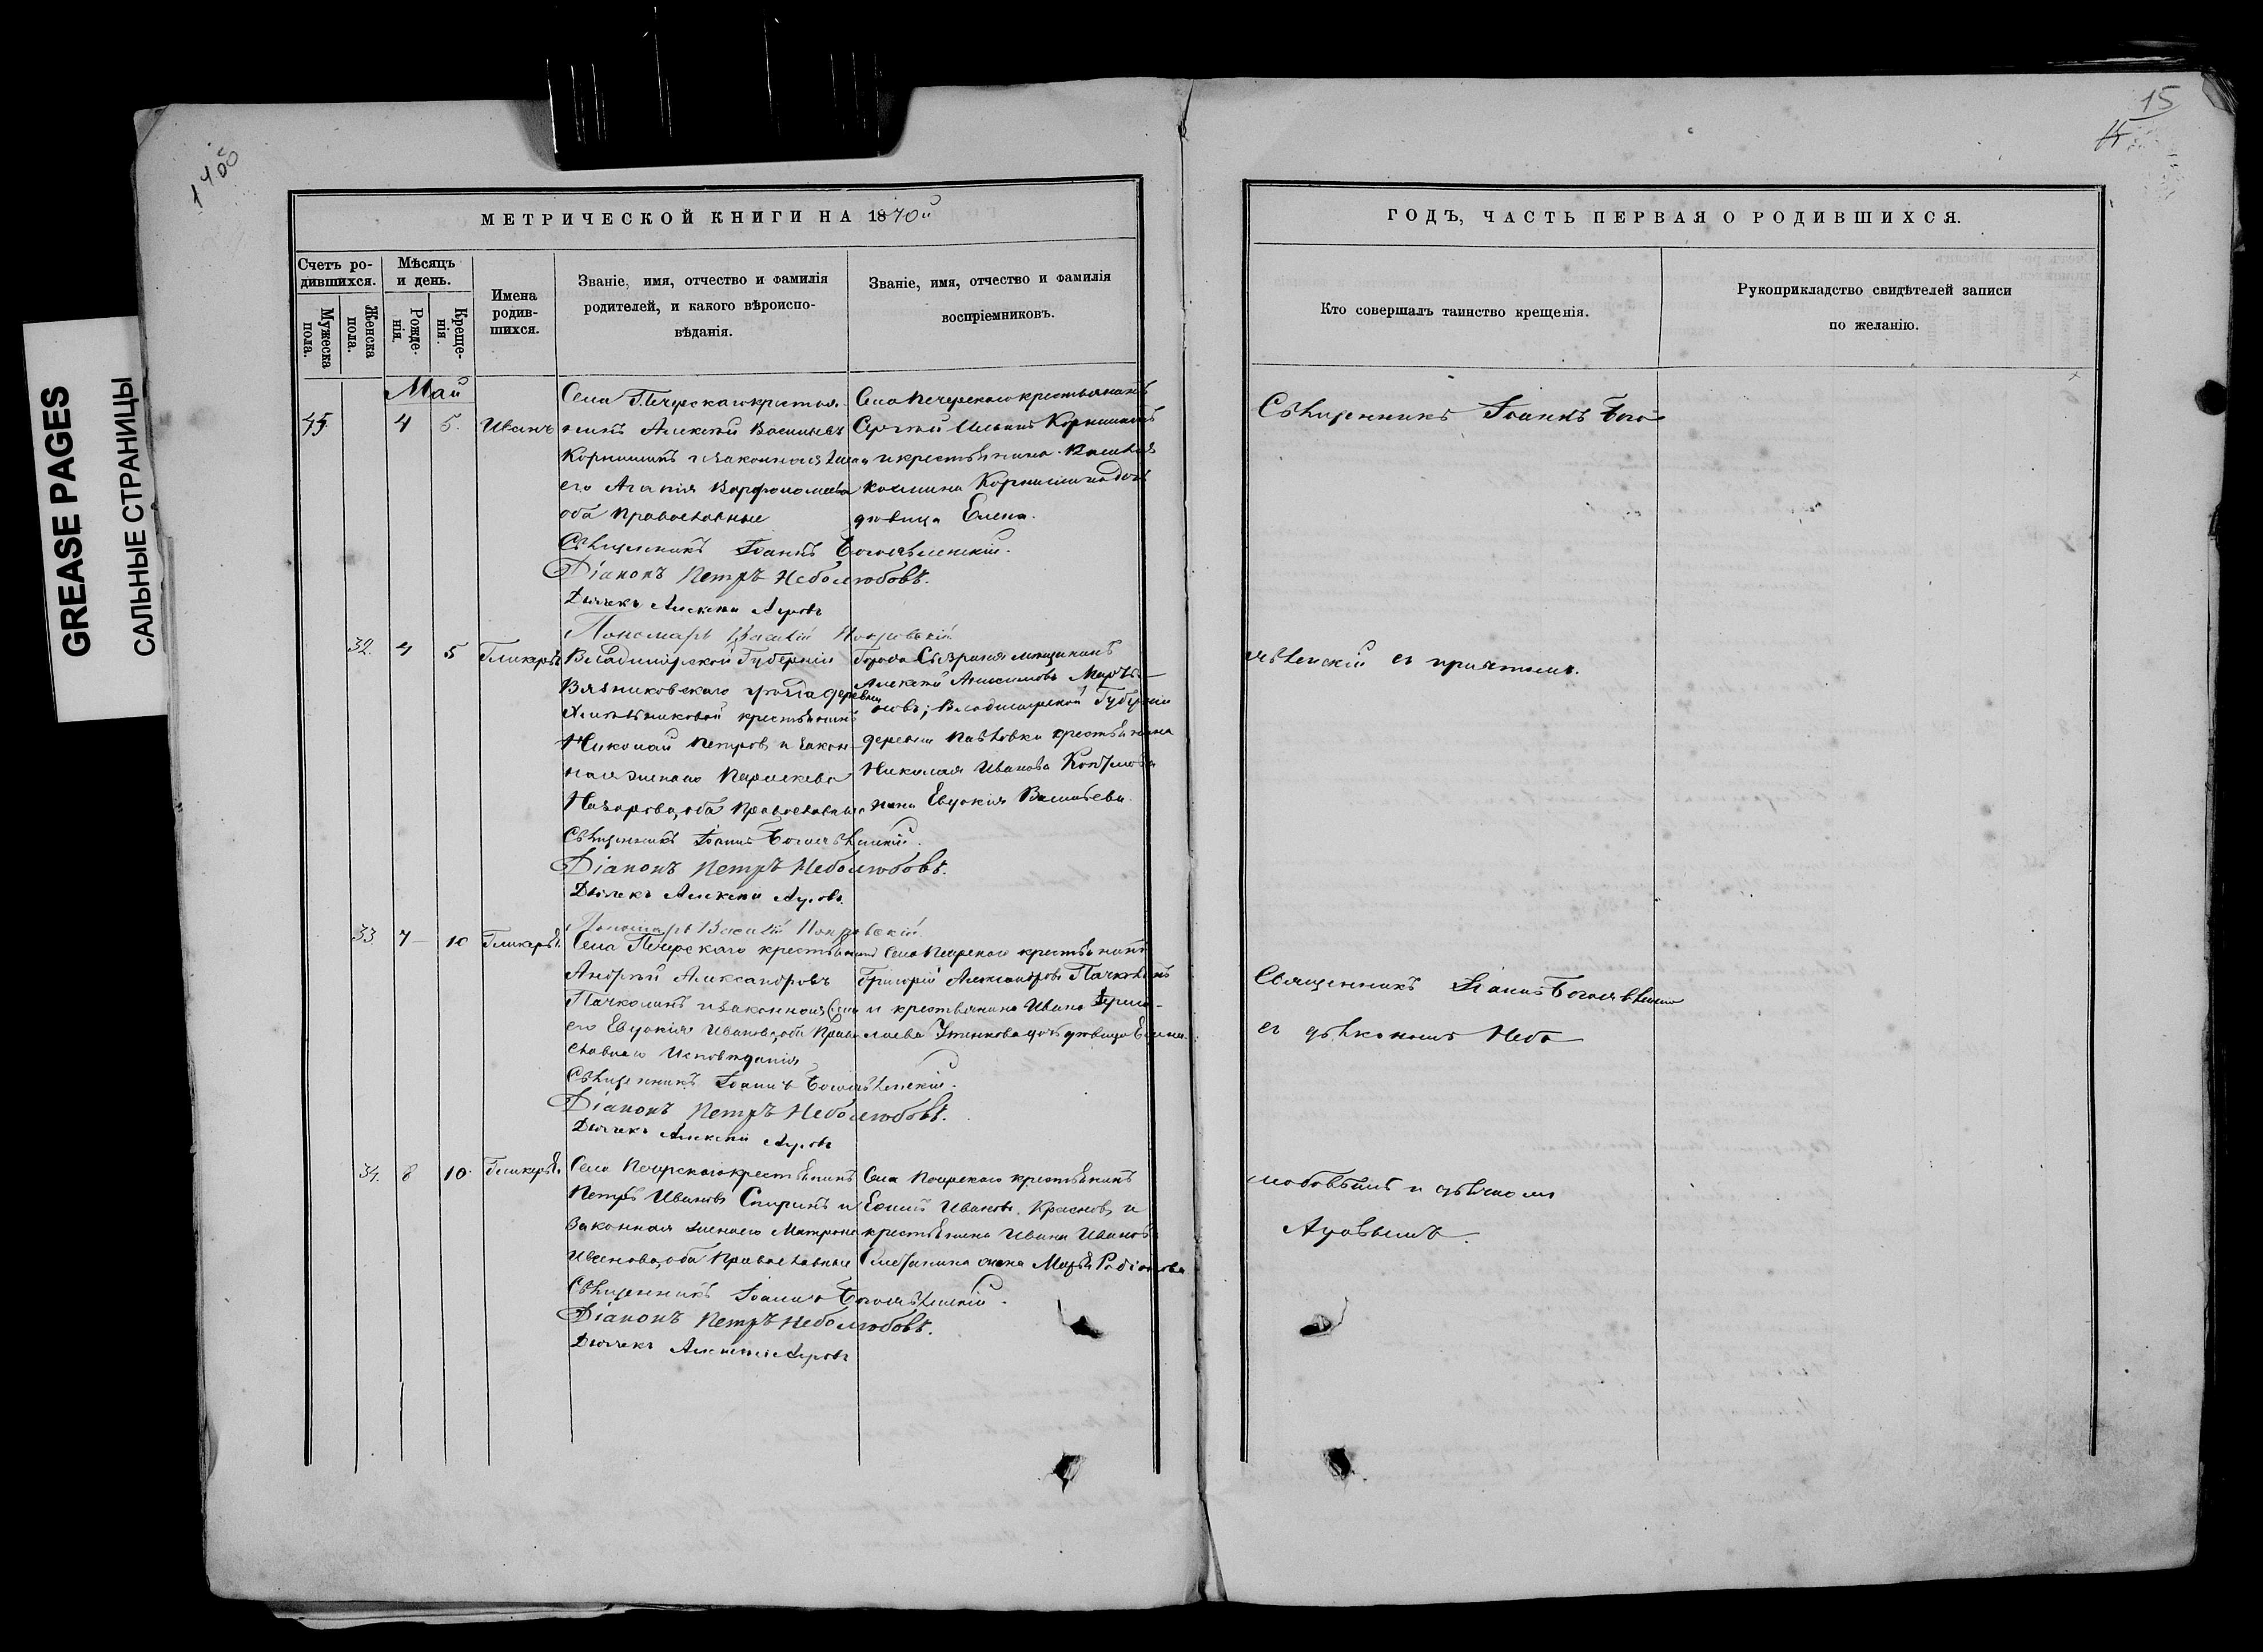 GREASE PAGES
САЛЬНЫЕ СТРАНИЦЫ
15
МЕТРИЧЕСКОЙ КНИГИ НА 1870й
Счетъ родившихся.
Мужеска пола.
Женска пола.
Мѣсяцъ и день.
Рожденія.
Крещенія.
Имена родившихся.
Званіе, имя, отчество и фамилія
родителей, и какого вѣроиспо-
вѣданія.
Званіе, имя, отчество и фамилія
воспріемниковъ.
Май
45. 4 5. Иванъ
Села Печерскаго крестья-
нинъ Алексѣй Васильевъ
Корнишинъ и законная жена
его Агапія Варфоломеева
оба православные
Села Печерскаго крестьянинъ
Сергѣй Ильинъ Корнишинъ
и крестьянина
Космина Корнишина дочь
дѣвица Елена.
Священникъ Іоаннъ Богоявленскій.
Діаконъ Петръ Неболюбовъ.
Дьячекъ Алексѣй Ауровъ
Пономарь Василій Покровскій
32. 4 5 Гликерія
Владимірской Губерніи
Вязниковскаго уѣзда деревни
крестьянинъ
Николай Петровъ и закон-
ная жена его Параскева
Назарова, оба православные
Города Сызрани мещанинъ
Алексѣй Анисимовъ
Владимірской Губерніи
деревни Павловки крестьянина
Николая Иванова
жена Евдокія Васильева.
Священникъ Іоаннъ Богоявленскій.
Діаконъ Петръ Неболюбовъ.
Дьячекъ Алексѣй Ауровъ.
Пономарь Василій Покровскій
33. 7 10 Гликерія
Села Печерскаго крестьянинъ
Андрей Александровъ
Пачколинъ и законная жена
его Евдокія Иванова, оба Право-
славнаго Исповѣданія
Села Печерскаго крестьянинъ
Григорій Александровъ
и крестьянина Ивана Ермо-
лаева дочь дѣвица Елена.
Священникъ Іоаннъ Богоявленскій.
Діаконъ Петръ Неболюбовъ.
Дьячекъ Алексѣй Ауровъ
34. 8 10. Гликерія
Села Печерскаго крестьянинъ
Петръ Ивановъ Спиринъ и
законная жена его Матрона
Иванова, оба православные
Села Печерскаго крестьянинъ
Ивановъ Красновъ и
крестьянина Ивана Иванова
Сметанина жена Марья Родіонова
Священникъ Іоаннъ Богоявленскій.
Діаконъ Петръ Неболюбовъ.
Дьячекъ Алексѣй Ауровъ
ГОДЪ, ЧАСТЬ ПЕРВАЯ О РОДИВШИХСЯ.
Кто совершалъ таинство крещенія.
Рукоприкладство свидѣтелей записи
по желанію.
Священникъ Іоаннъ Бого-
явленскій съ причтомъ.
Священникъ Іоаннъ Богоявленскій
съ діакономъ Небо-
любовымъ и дьячкомъ
Ауровымъ.